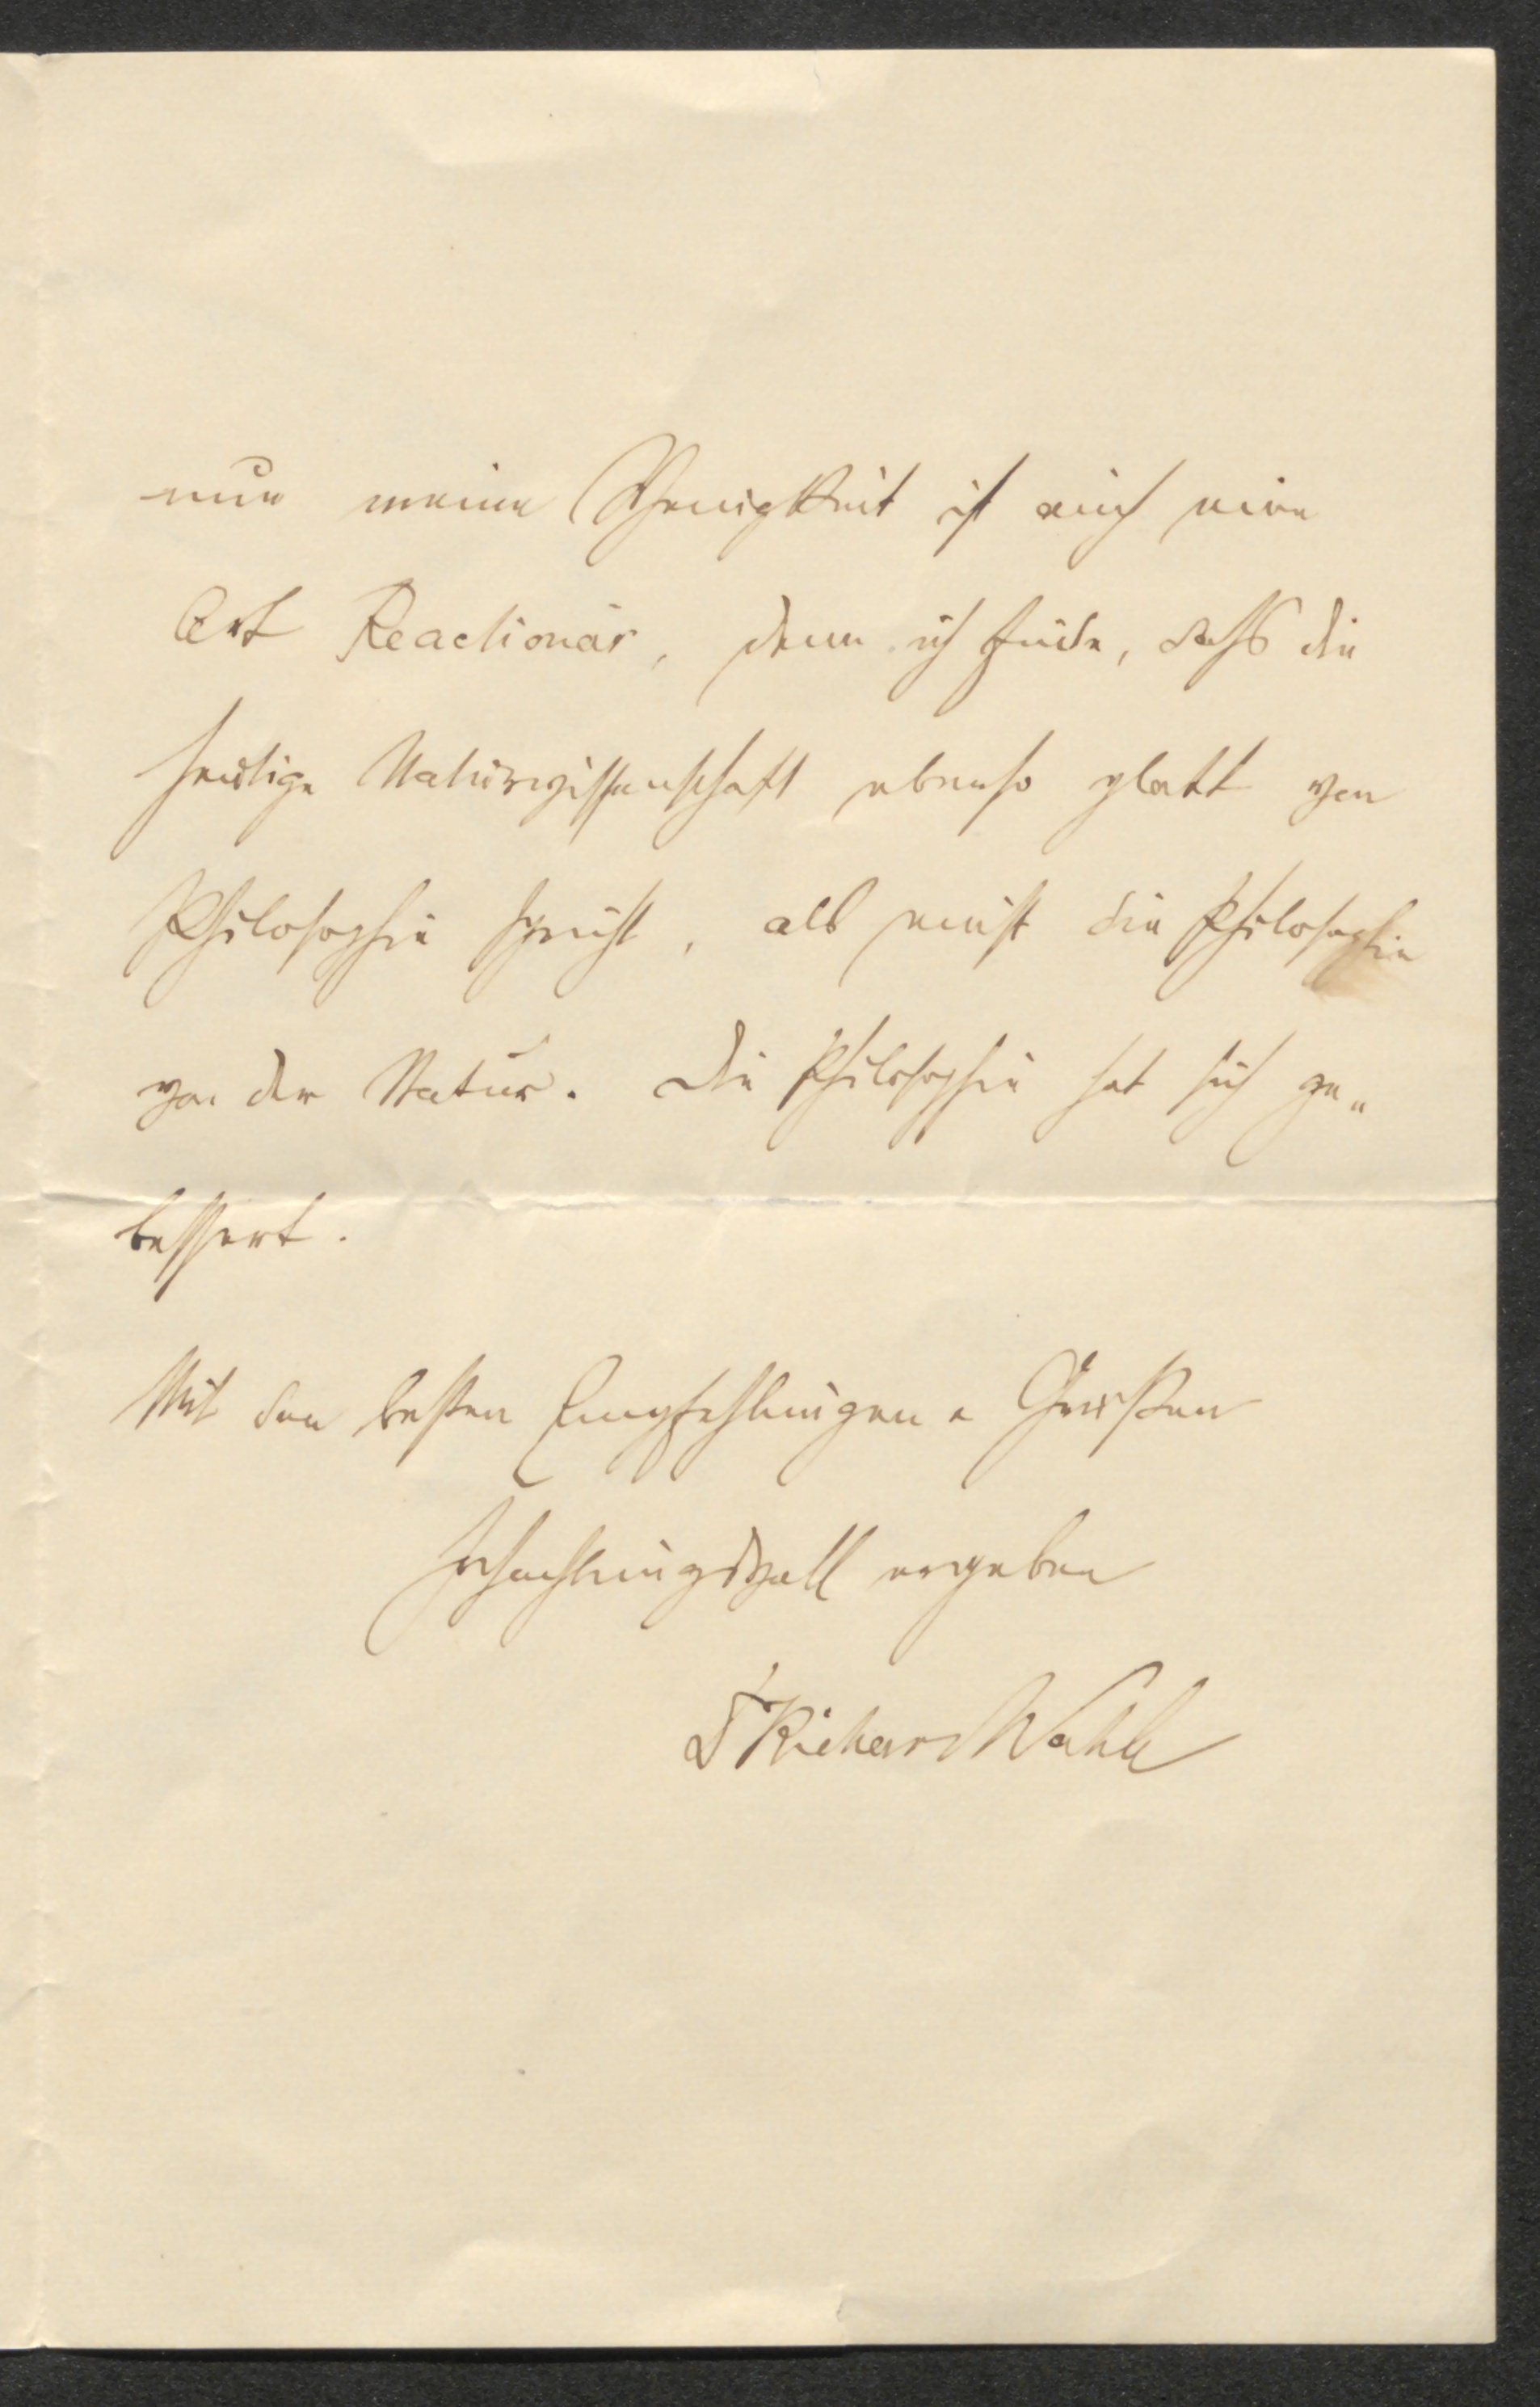 nun meine Wenigkeit ist auch eine
Art Reactionär, denn ich finde, dass die
heutige Naturwissenschaft ebenso glatt von
Philosophie spricht, als einst die Philosophie
von der Natur. Die Philosophie hat sich ge-
bessert.
Mit den besten Empfehlungen u Grüßen
hochachtungsvoll ergeben
Dr Richard Wahle